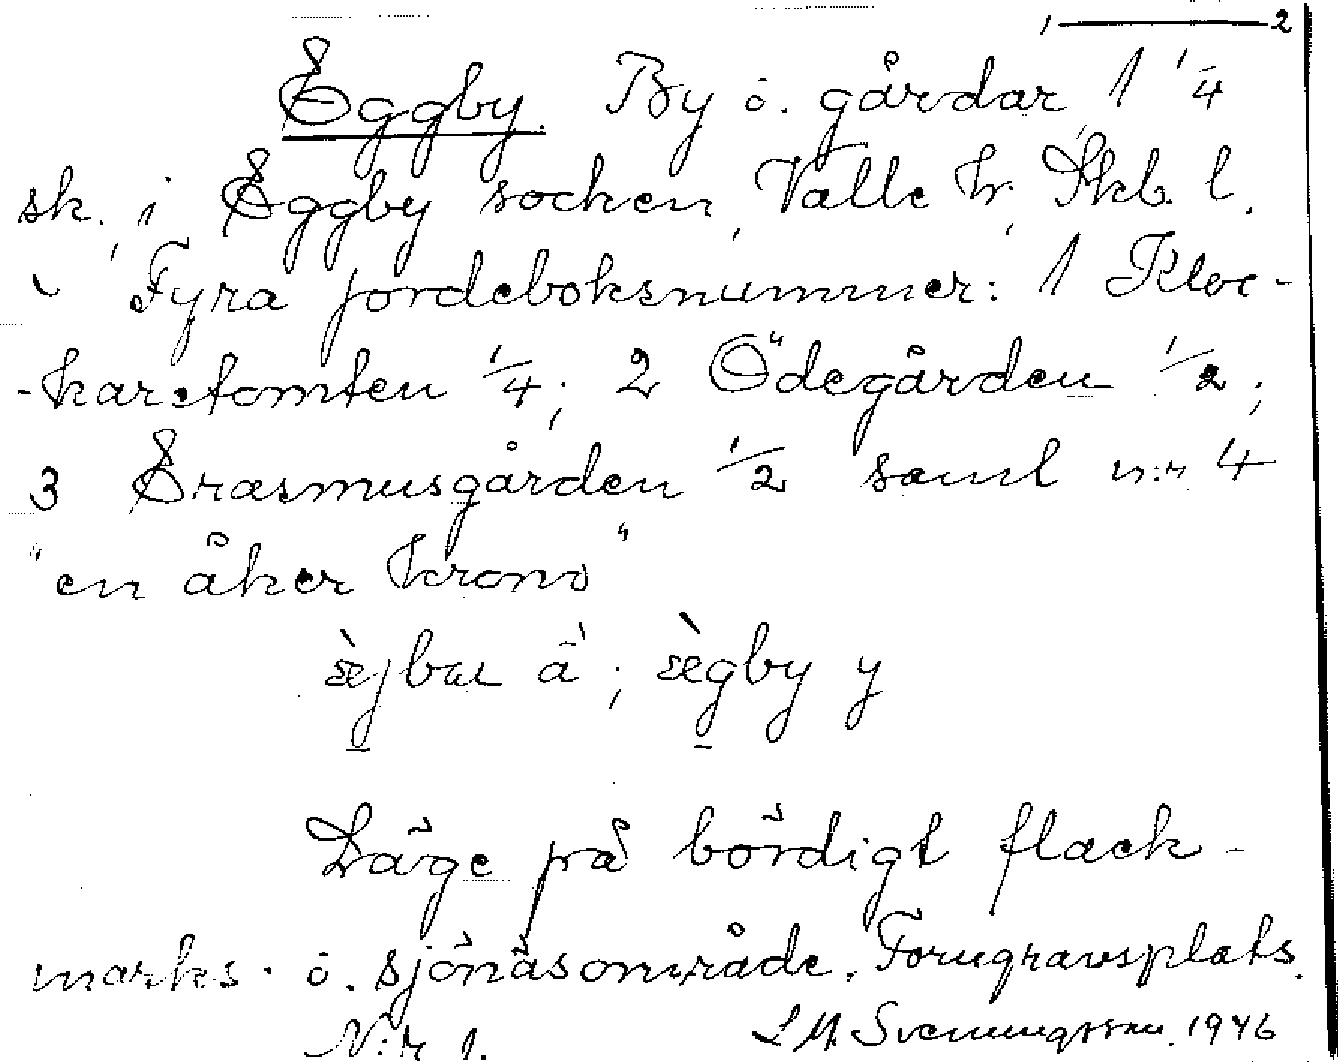 1 — 2
Eggby. By o. gårdar, 1 1/4
sk. i Eggby socken, Valle hr, Skb. l.
Fyra jordeboksnummer: 1 Kloc-
-karetomten 1/4; 2 Ödegården 1/2;
3 Erasmusgården 1/2 samt n:r 4
"en åker krono"
Läge på bördigt flack-
marks- o. sjönäsområde. Forngravsplats.
N:r 1. L M. Svenungsson. 1946